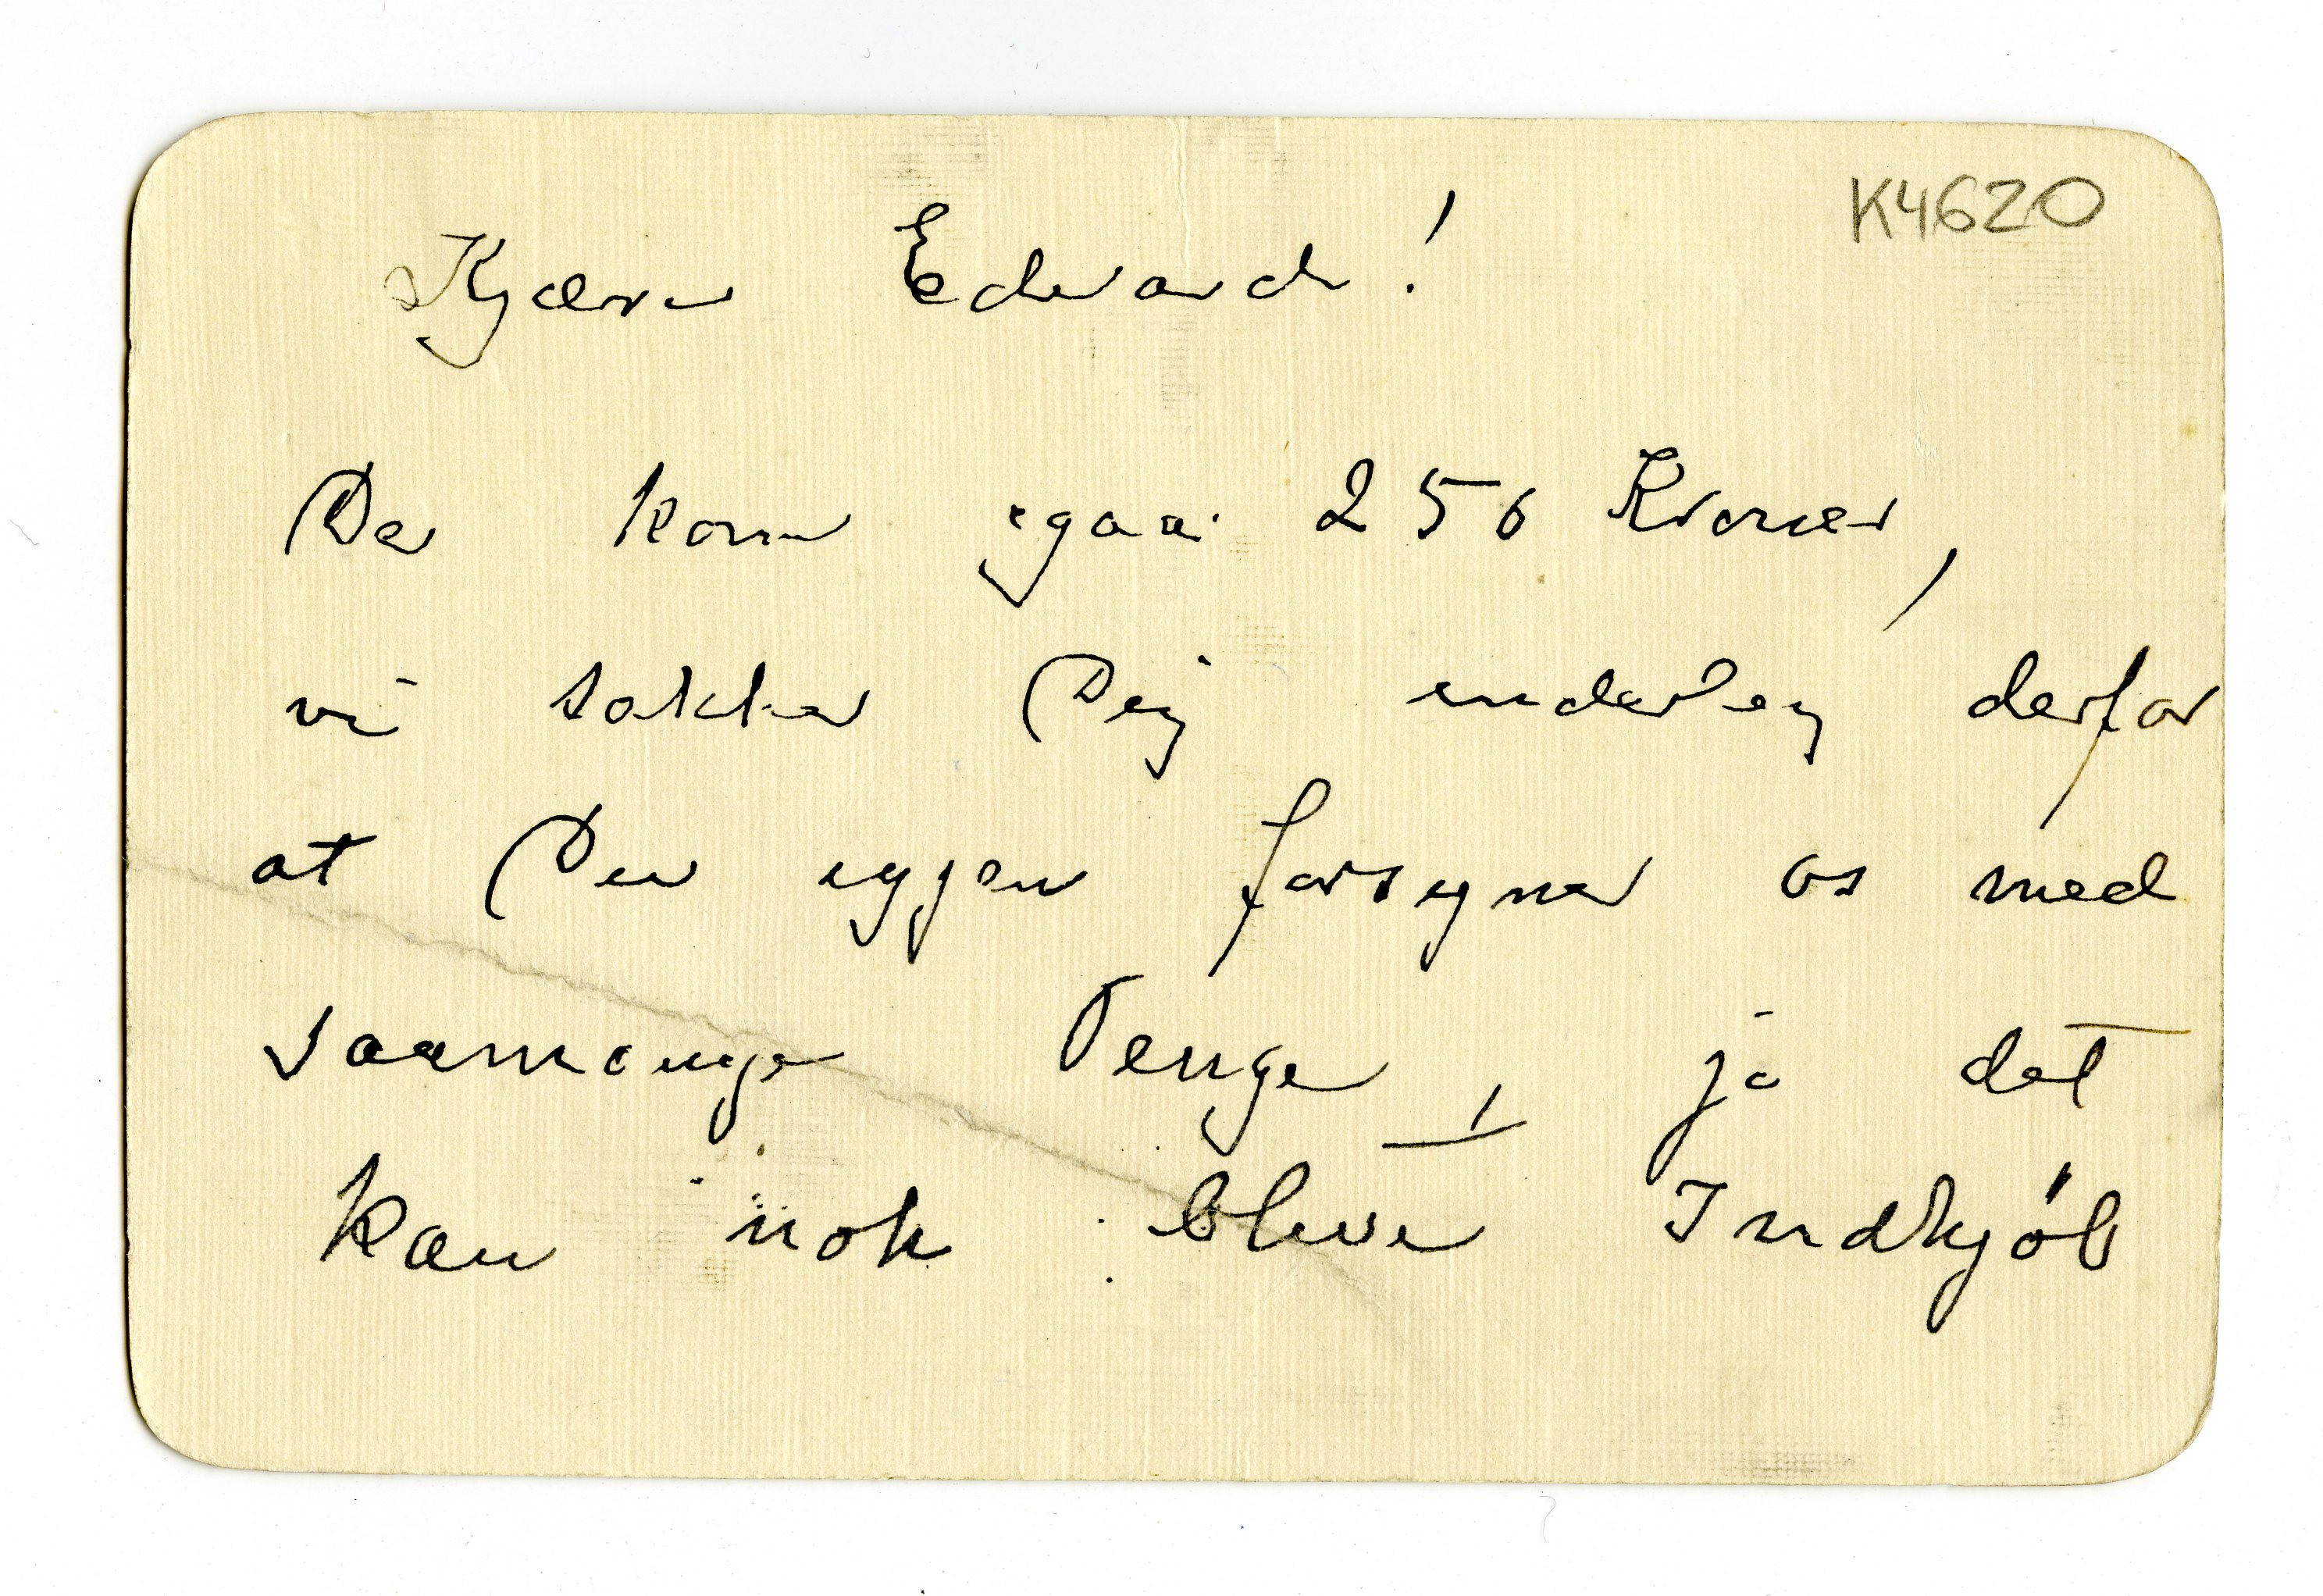 K4620
Kjære Edvard!
Der kom igaar 256 Kroner,
vi takker Dig inderlig derfor
at Du igjen forsyner os med
saamange Penge, ja det
kan nok blive Indkjöb